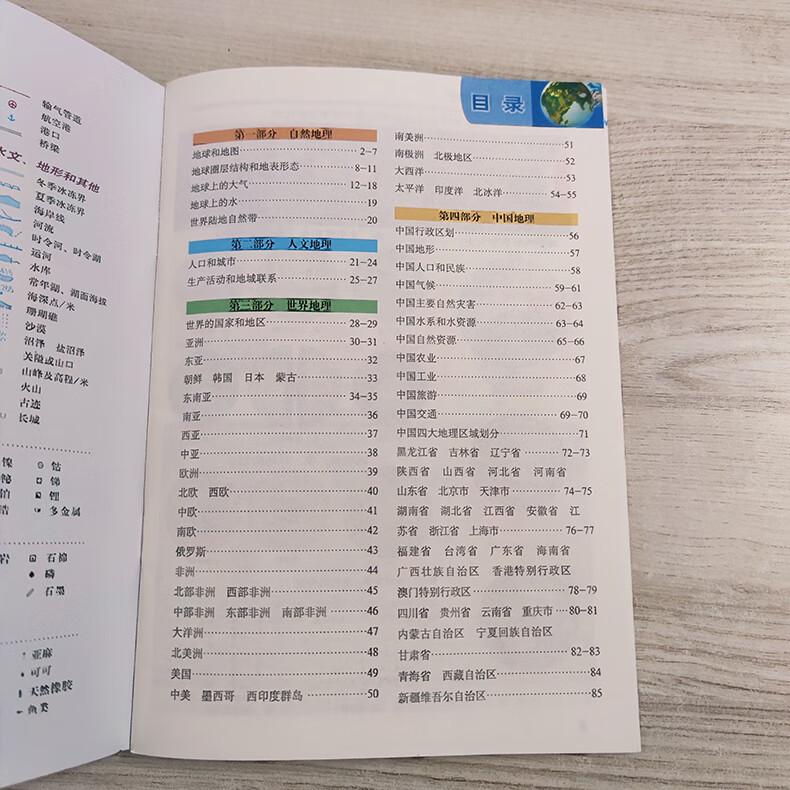 输气管道
航空港
港口
桥梁
水文、地形和其他
冬季冰冻界
夏季冰冻界
海岸线
河流
时令河、时令湖
运河
水库
常年湖、湖面海拔
海深点/米
珊瑚礁
沙漠
沼泽 盐沼泽
关隘或山口
山峰及高程/米
火山
古迹
长城
镍 钴
铋 锑
铂 锂
锆 多金属
岩 石棉
磷
石墨
亚麻
可可
天然橡胶
鱼类
目录
第一部分 自然地理
地球和地图 2-7
地球圈层结构和地表形态 8-11
地球上的大气 12-18
地球上的水 19
世界陆地自然带 20
第二部分 人文地理
人口和城市 21-24
生产活动和地域联系 25-27
第三部分 世界地理
世界的国家和地区 28-29
亚洲 30-31
东亚 32
朝鲜 韩国 日本 蒙古 33
东南亚 34-35
南亚 36
西亚 37
中亚 38
欧洲 39
北欧 西欧 40
中欧 41
南欧 42
俄罗斯 43
非洲 44
北部非洲 西部非洲 45
中部非洲 东部非洲 南部非洲 46
大洋洲 47
北美洲 48
美国 49
中美 墨西哥 西印度群岛 50
南美洲 51
南极洲 北极地区 52
大西洋 53
太平洋 印度洋 北冰洋 54-55
第四部分 中国地理
中国行政区划 56
中国地形 57
中国人口和民族 58
中国气候 59-61
中国主要自然灾害 62-63
中国水系和水资源 63-64
中国自然资源 65-66
中国农业 67
中国工业 68
中国旅游 69
中国交通 69-70
中国四大地理区域划分 71
黑龙江省 吉林省 辽宁省 72-73
陕西省 山西省 河北省 河南省
山东省 北京市 天津市 74-75
湖南省 湖北省 江西省 安徽省 江
苏省 浙江省 上海市 76-77
福建省 台湾省 广东省 海南省
广西壮族自治区 香港特别行政区
澳门特别行政区 78-79
四川省 贵州省 云南省 重庆市 80-81
内蒙古自治区 宁夏回族自治区
甘肃省 82-83
青海省 西藏自治区 84
新疆维吾尔自治区 85